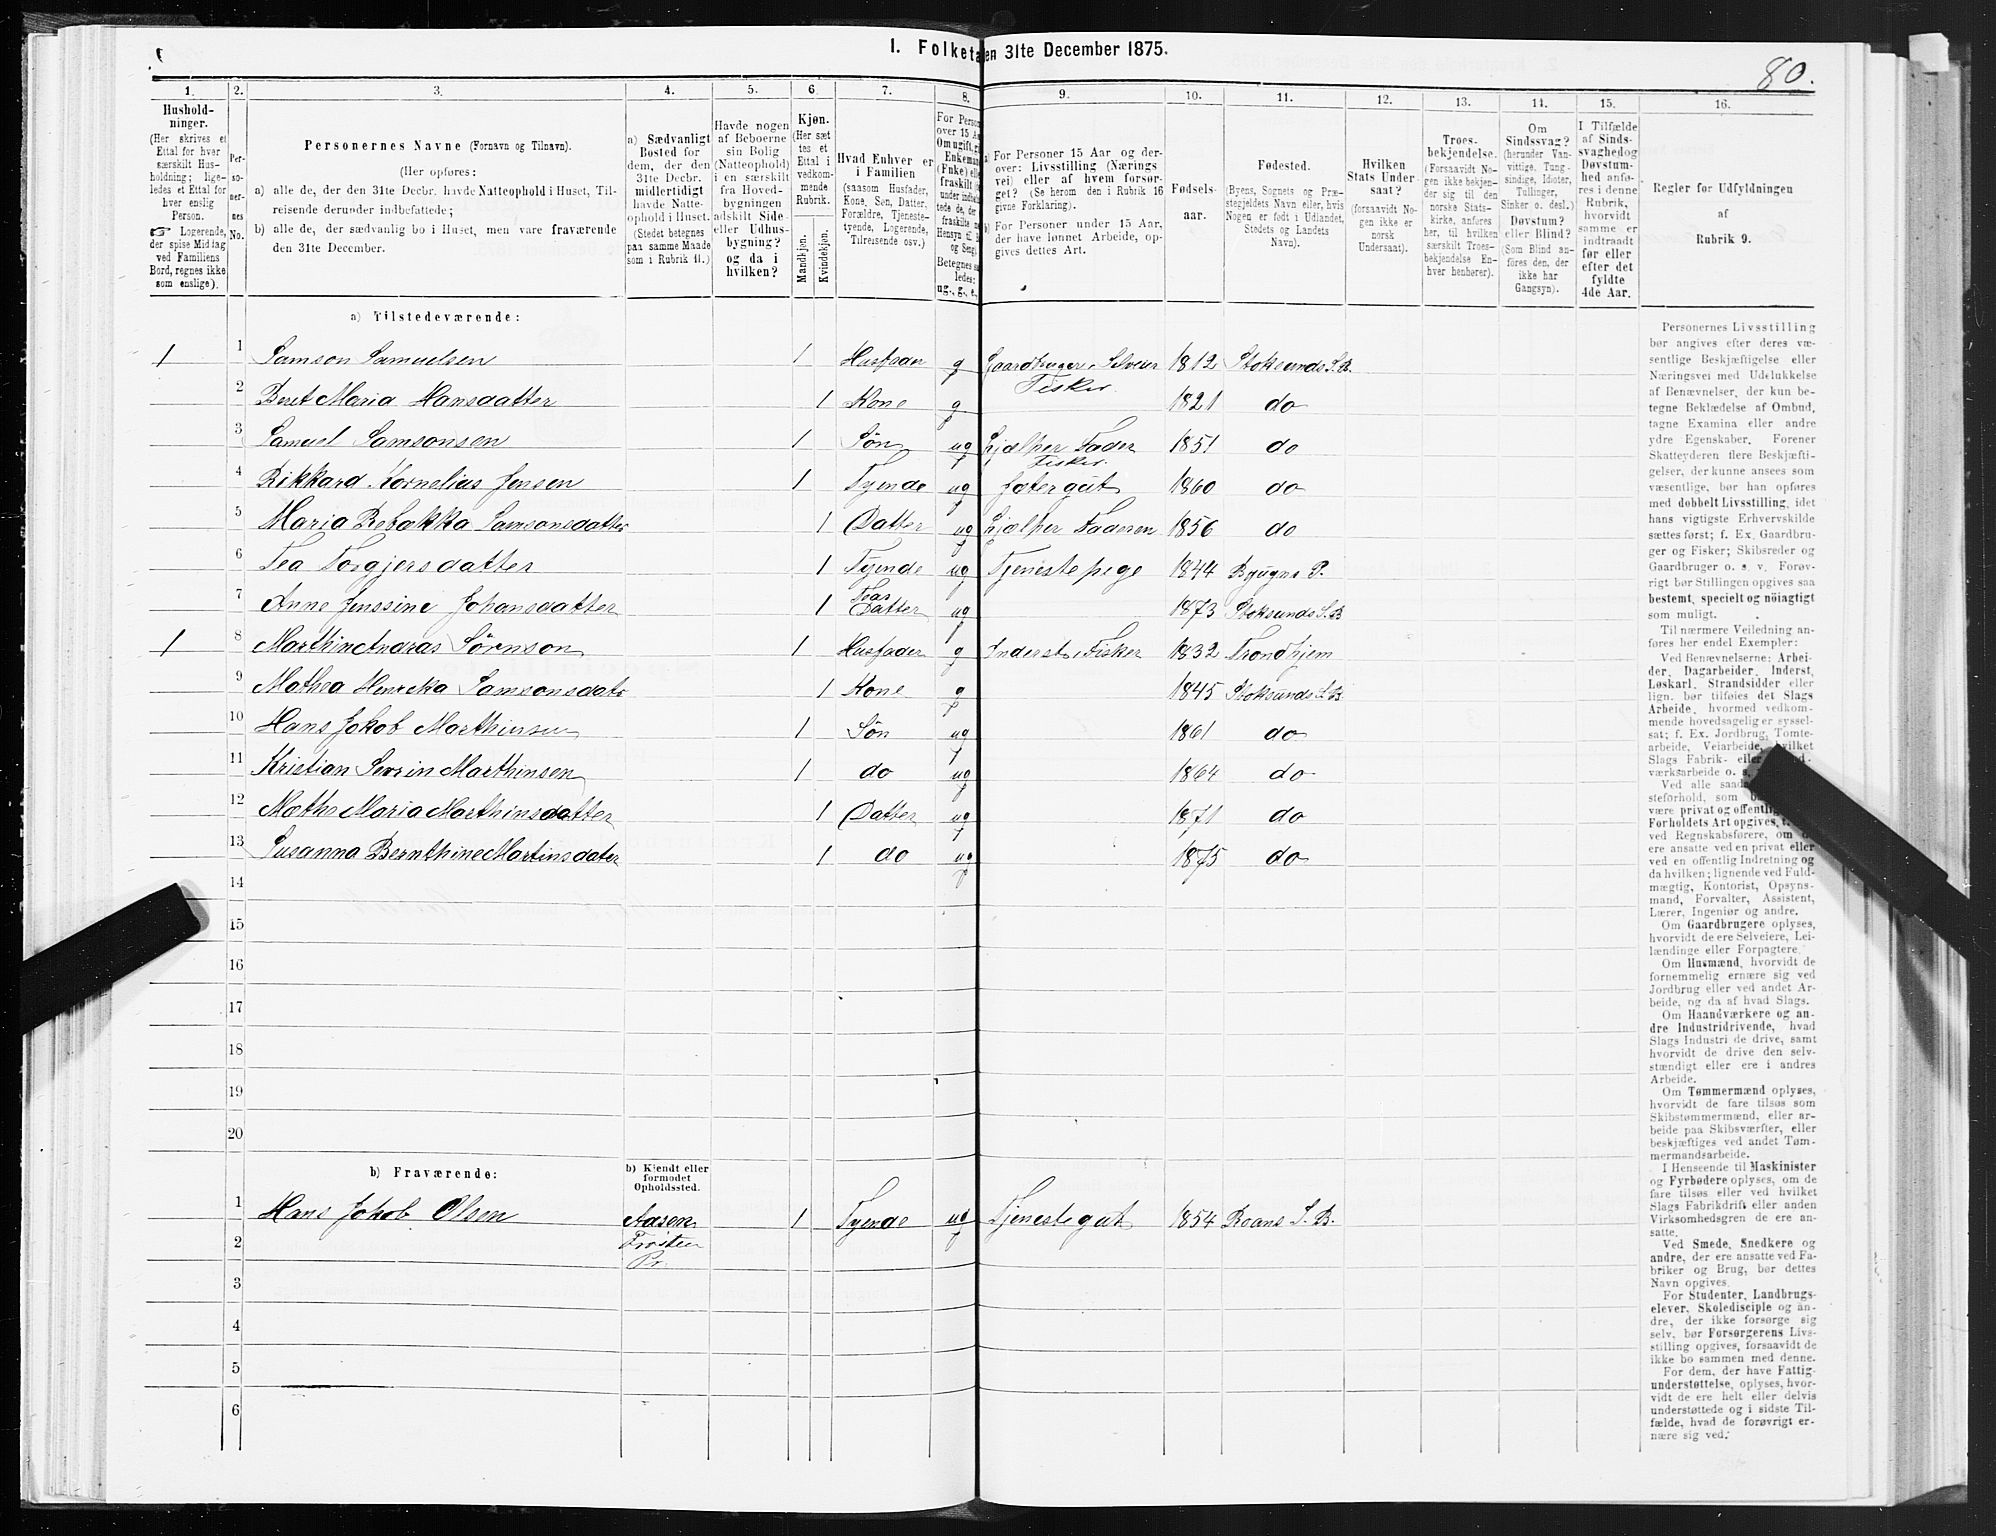 I. Folketa en 31te December 1875.
80.
1.
Hushold-
ninger.
(Her skrives et
Ettal for hver
særskilt Hus-
holdning; lige-
ledes et Ettal for
hver enslig
Person.
☞ Logerende,
der spise Middag
ved Familiens
Bord, regnes ikke
som enslige).
2.
Per-
so-
ner-
nes
No.
3.
Personernes Navne (Fornavn og Tilnavn).
(Her opføres:
a) alle de, der den 31te Decbr. havde Natteophold i Huset, Til-
reisende derunder indbefattede;
b) alle de, der sædvanlig bo i Huset, men vare fraværende
den 31te December.
4.
a) Sædvanligt
Bosted for
dem, der den
31te Decbr.
midlertidigt
havde Natte-
ophold i Huset.
(Stedet betegnes
paa samme Maade
som i Rubrik 11.)
5.
Havde nogen
af Beboerne
sin Bolig
(Natteophold)
i en særskilt
fra Hoved-
bygningen
adskilt Side-
eller Udhus-
bygning?
og da i
hvilken?
6.
Kjøn.
(Her sæt
tes et
Ettal i
vedkom-
mende
Rubrik.
Mandkjøn.
Kvindekjøn.
7.
Hvad Enhver er
i Familien
(saasom Husfader,
Kone, Søn, Datter,
Forældre, Tjeneste-
tyende, Logerende,
Tilreisende osv.)
8.
For Person
over 15 Aa
Om ugift, g
Enkeman
(Fuke) elle
fraskilt
Betegnes sa
ledes:
ug., g., e.,
9.
a) For Personer 15 Aar og der-
over: Livsstilling (Nærings
vei) eller af hvem forsør-
get? (Se herom den i Rubrik 16
givne Forklaring).
b) For Personer under 15 Aar,
der have lønnet Arbeide, op-
gives dettes Art.
10.
Fødsels-
aar.
11.
Fødested.
(Byens, Sognets og Præ-
stegjeldets Navn eller, hvis
Nogen er født i Udlandet,
Stedets og Landets
Navn).
12.
Hvilken
Stats Under-
saat?
(forsaavidt No-
gen ikke er
norsk
Undersaat).
13.
Troes-
bekjendelse.
(Forsaavidt No-
gen ikke bekjen-
der sig til den
norske Stats-
kirke, anføres
her, til hvilken
særskilt Troes-
bekjendelse En-
hver henhører).
14.
Om
Sindssvag?
(herunder Van-
vittige, Tung-
sindige, Idioter,
Tullinger,
Sinker o. desl.)
Døvstum?
eller Blind?
(Som Blind an-
føres den, der
ikke har
Gangsyn).
15.
I Tilfælde
af Sinds-
svaghed og
Døvstum-
hed anfø-
res i denne
Rubrik,
hvorvidt
samme er
indtraadt
før eller
efter det
fyldte
4de Aar.
16.
Regler for Udfyldningen
af
Rubrik 9.
a) Tilstedeværende:
1 1 Samson Samuelsen 1 Husfader g Gaardbruger, Selveier 1812 Stoksunds S.B.
Fisker.
2 Beret Maria Hansdatter 1 Kone g 1821 do
3 Samuel Samsonsen 1 Søn ug hjælper Fader 1851 do
Fisker.
4 Rikkard Kornelias Jensen 1 Tyende ug jætergut 1860 do
5 Maria Rebækka Samsonsdatter 1 Datter ug hjælper Faderen 1856 do
6 Tea Torgjersdatter 1 Tyende ug Tjenestepige 1844 Bjugns P.
7 Anne Jenssine Johansdatter 1 Teas Datter ug 1873 Stoksunds S.B
1 8 Marthin Andras Sørnson 1 Husfader g Inderst, Fisker 1832 Trondhjem
9 Mathea Henreka Samsonsdatr 1 Kone g 1845 Stoksunds S.B
10 Hans Jokob Marthinsen 1 Søn ug 1861 do
11 Kristian Sevrin Marthinsen 1 do ug 1864 do
12 Mathe Maria Marthinsdatter 1 Datter ug 1871 do
13 Susanna Bernthine Martinsdater 1 do ug 1875 do
14
15
16
17
18
19
20
b) Fraværende:
b) Kjendt eller
formodet
Opholdssted.
1 Hans Jokob Olsen Aasen 1 Tyende ug Tjenestegut 1854 Roans S.B.
2 Frosten
Pr.
3
4
5
6
Personernes Livsstilling
bør angives efter deres væ-
sentlige Beskjæftigelse eller
Næringsvei med Udelukkelse
af Benævnelser, der kun be-
tegne Beklædelse af Ombud,
tagne Examina eller andre
ydre Egenskaber. Forener
Skatteyderen flere Beskjæfti-
gelser, der kunne ansees som
væsentlige, bør han opføres
med dobbelt Livsstilling, idet
hans vigtigste Erhvervskilde
sættes først; f. Ex. Gaardbru-
ger og Fisker; Skibsreder og
Gaardbruger o. s. v. Forøv-
rigt bør Stillingen opgives saa
bestemt, specielt og nöiagtigt
som muligt.
Til nærmere Veiledning an-
føres her endel Exempler:
Ved Benævnelserne: Arbei-
der, Dagarbeider, Inderst,
Løskarl, Strandsidder eller
lign. bør tilføies det Slags
Arbeide, hvormed vedkom-
mende hovedsagelig er syssel-
sat; f. Ex. Jordbrug, Tomte-
arbeide, Veiarbeide, hvilket
Slags Fabrik- eller
værksarbeide o. s.
Ved alle saad
steforhold, som
være privat og offentlig
Forholdets Art opgives,
ved Regnskabsførere, om
ere ansatte ved en privat eller
ved en offentlig Indretning og
da hvilken; lignende ved Fuld-
mægtig, Kontorist, Opsyns-
mand, Forvalter, Assistent,
Lærer, Ingeniør og andre.
Om Gaardbrugere oplyses,
hvorvidt de ere Selveiere, Lei-
lændinge eller Forpagtere.
Om Husmænd, hvorvidt de
fornemmelig ernære sig ved
Jordbrug eller ved andet Ar-
beide, og da af hvad Slags.
Om Haandværkere og an-
dre Industridrivende, hvad
Slags Industri de drive, samt
hvorvidt de drive den selv-
stændigt eller ere i andres
Arbeide.
Om Tømmermænd oplyses,
hvorvidt de fare tilsøs som
Skibstømmermænd, eller ar-
beide paa Skibsværfter, eller
beskjæftiges ved andet Tøm-
mermandsarbeide.
I Henseende til Maskinister
og Fyrbødere oplyses, om de
fare tilsøs eller ved hvilket
Slags Fabrikdrift eller anden
Virksomhedsgren de ere an-
satte.
Ved Smede, Snedkere og
andre, der ere ansatte ved Fa-
briker og Brug, bør dettes
Navn opgives.
For Studenter, Landbrugs-
elever, Skoledisciple og an-
dre, der ikke forsørge sig
selv, bør Forsørgerens Livs-
stilling opgives, forsaavidt de
ikke bo sammen med denne.
For dem, der have Fattig-
understøttelse, oplyses, hvor-
vidt de ere helt eller delvis
understøttede og i sidste Til-
fælde, hvad de forøvrigt er-
nære sig ved.